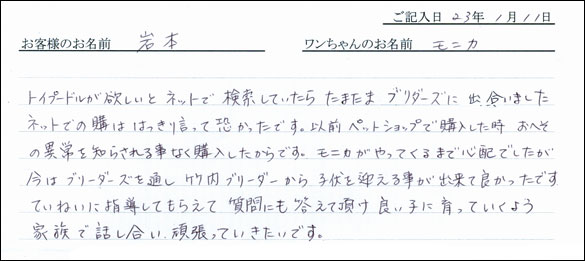 ご記入日 23年 1月 11日
お客様のお名前 岩本 ワンちゃんのお名前 モニカ
トイプードルが欲しいと ネットで 検索していたら たまたま ブリダーズに 出会いました
ネットでの購は はっきり言って 恐かったです。以前 ペットショップで 購入した時 おへそ
の異常を 知らされる事なく 購入したからです。モニカが やってくるまで心配でしたが
今は ブリーダーズを通し 竹内ブリーダーから 子犬を迎える事が 出来て良かったです
ていねいに 指導してもらえて 質問にも 答えて頂け 良い子に 育っていくよう
家族で 話し合い、頑張っていきたいです。